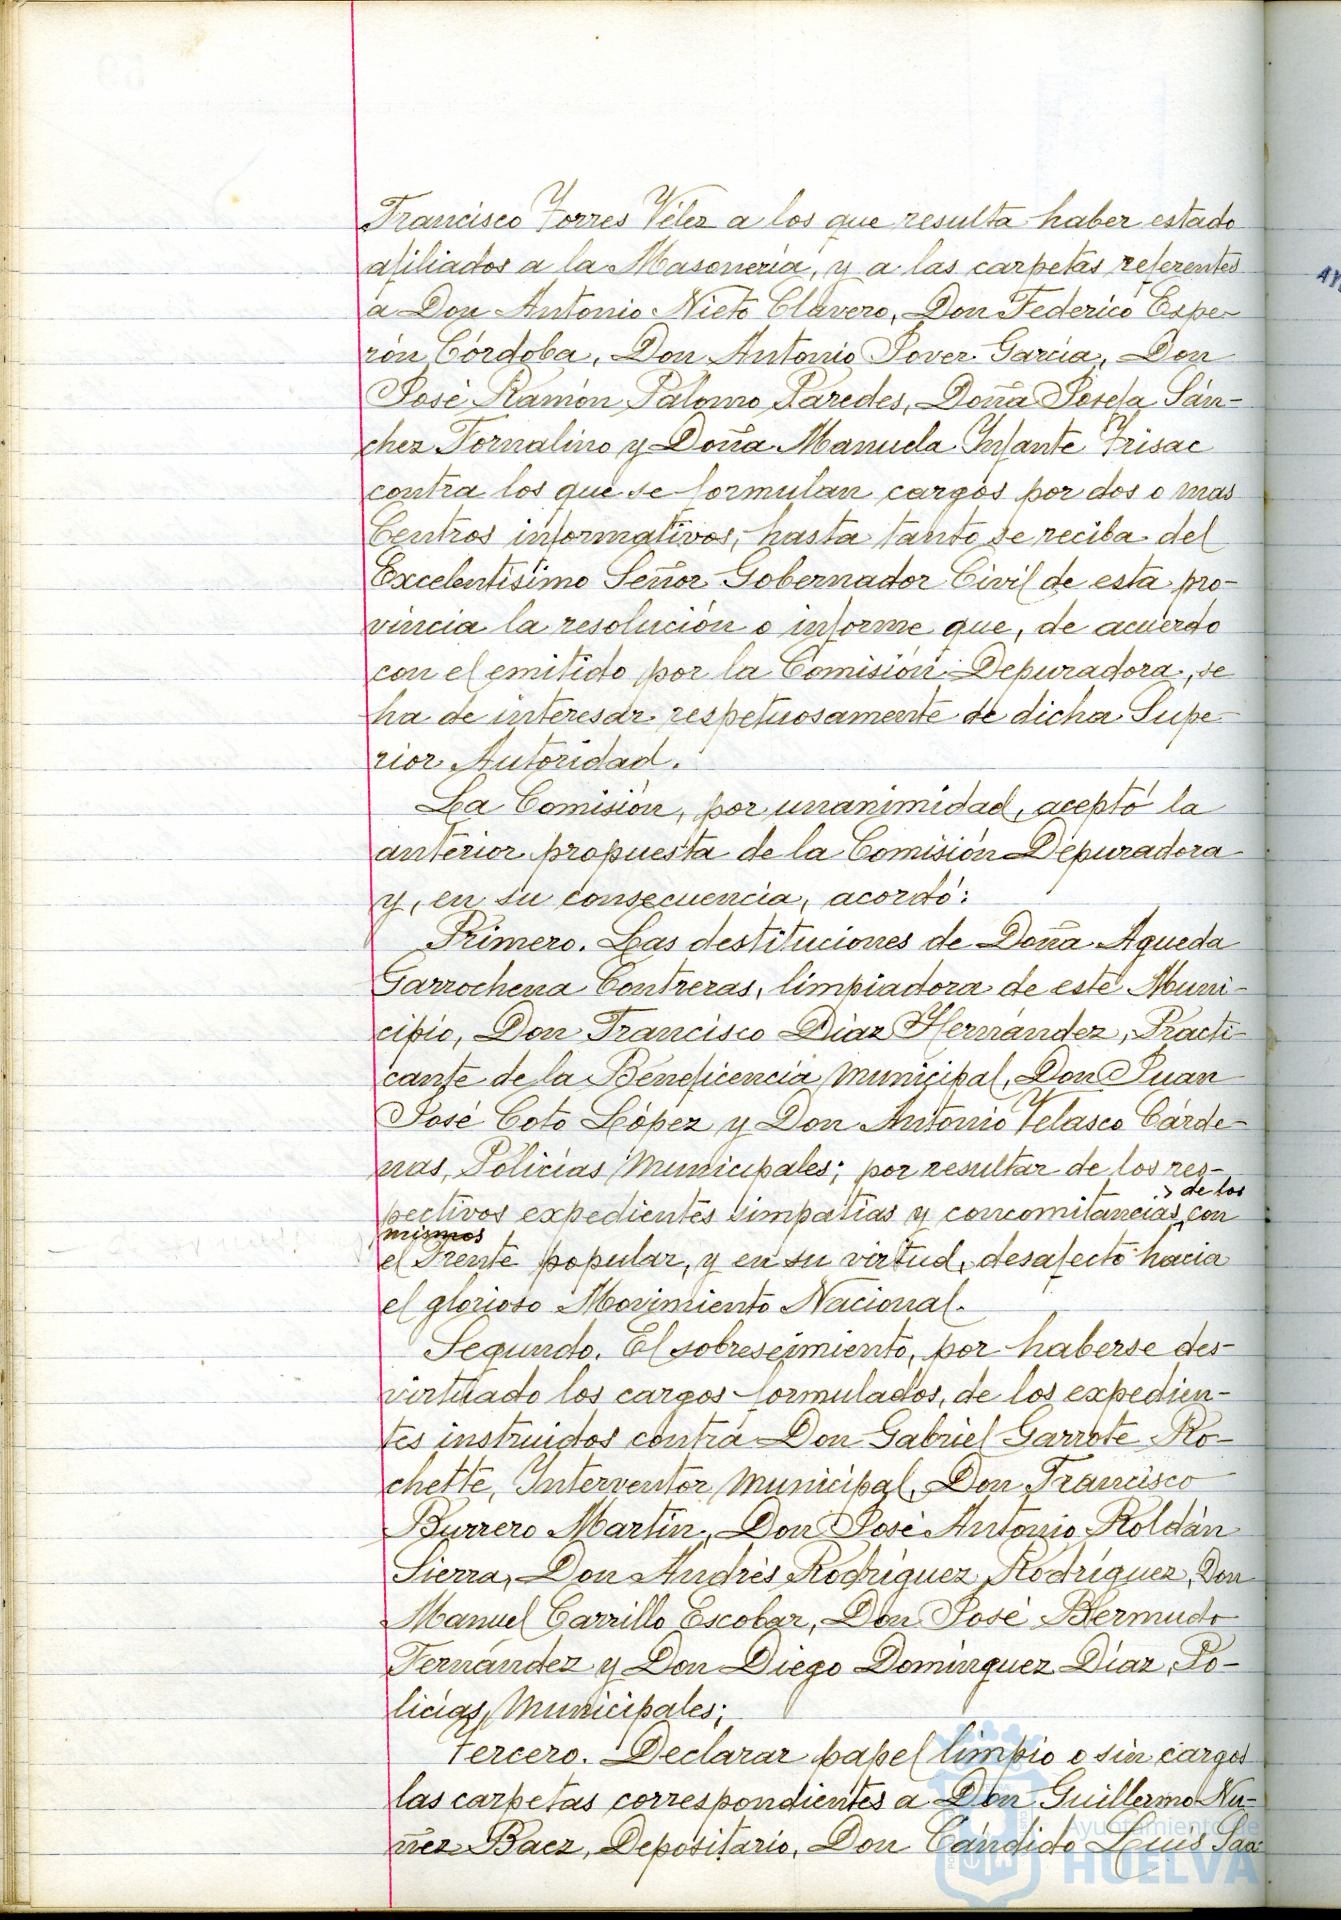 Francisco Torres Vélez a los que resulta haber estado
afiliados a la Masonería, y a las carpetas referentes
a Don Antonio Nieto Clavero, Don Federico Espe-
rón Córdoba, Don Antonio Pover García, Don
José Ramón Palomo Paredes, Doña Josefa Sán-
chez Tornalino y Doña Manuela Infante Trisac
contra los que se formulan cargos por dos o mas
Centros informativos, hasta tanto se reciba del
Excelentísimo Señor Gobernador Civil de esta pro-
vincia la resolución o informe que, de acuerdo
con el emitido por la Comisión Depuradora, se
ha de interesar respetuosamente de dicha Supe-
rior Autoridad.
La Comisión, por unanimidad, aceptó la
anterior propuesta de la Comisión Depuradora
y, en su consecuencia, acordó:
Primero. Las destituciones de Doña Agueda
Garrochena Contreras, limpiadora de este Muni-
cipio, Don Francisco Díaz Hernández, Practi-
cante de la Beneficencia Municipal, Don Juan
José Coto López y Don Antonio Velasco Cárde-
nas, Policías Municipales; por resultar de los res-
pectivos expedientes simpatías y concomitancias con
de los
mismos
el Frente popular, y en su virtud, desafecto hacia
el glorioso Movimiento Nacional.
Segundo. El sobreseimiento, por haberse des-
virtuado los cargos formulados, de los expedien-
tes instruidos contra Don Gabriel Garrote Ro-
chette, Interventor Municipal, Don Francisco
Burrero Martín, Don José Antonio Roldán
Sierra, Don Andrés Rodríguez Rodríguez, Don
Manuel Carrillo Escobar, Don José Bermudo
Fernández y Don Diego Domínguez Díaz, Po-
licías Municipales;
Tercero. Declarar papel limpio o sin cargos
las carpetas correspondientes a Don Guillermo Nu-
ñez Baez, Depositario, Don Cándido Luis Saa
Ayuntamiento de
HUELVA